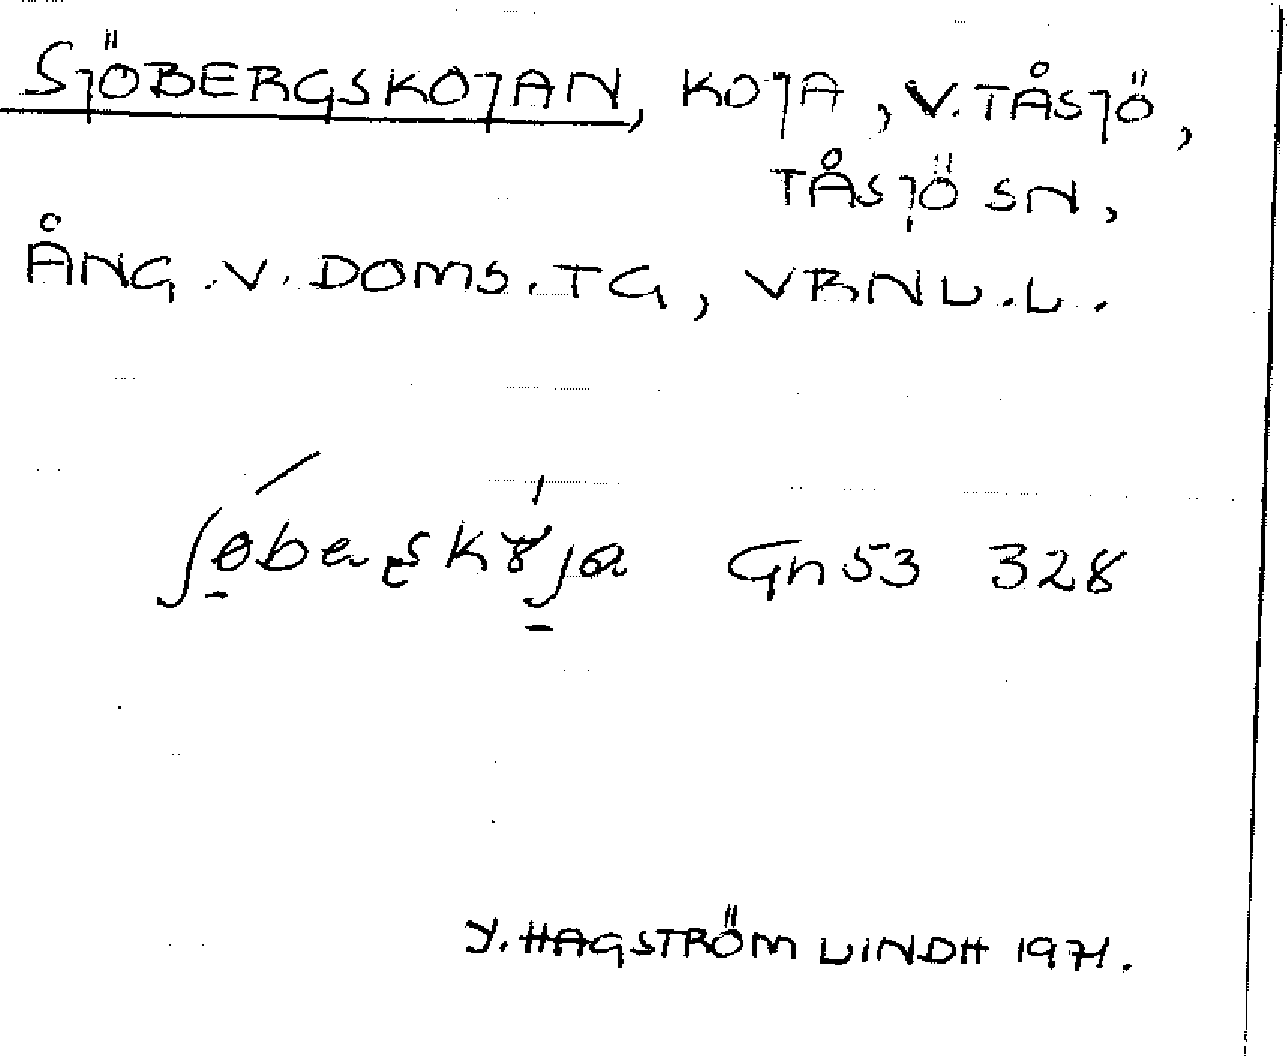 SJÖBERGSKOJAN, KOJA, V. TÅSJÖ,
TÅSJÖ SN,
ÅNG. V. DOMS. TG, VRNL. L.
Gn53 328
Y. HAGSTRÖM LINDH 1971.